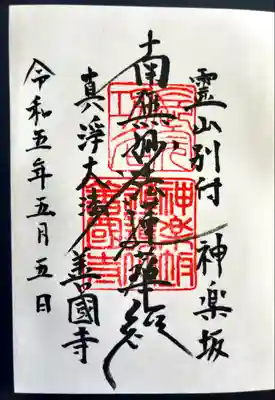 霊山別付 神楽坂
南無妙法蓮華経
真浄大法 善國寺
令和五年五月五日
神楽坂
善國寺